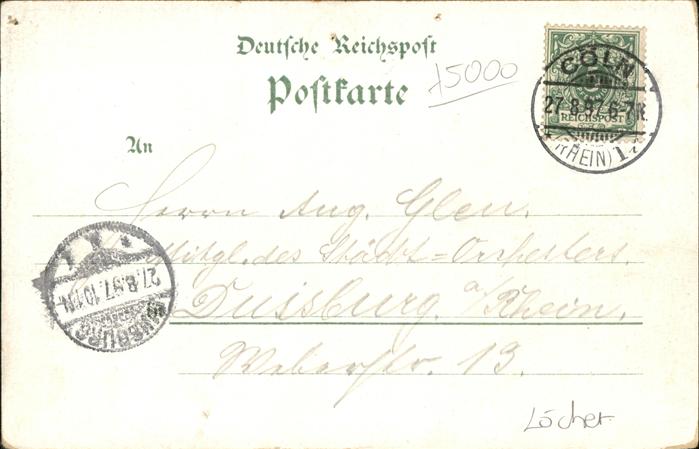 Deutsche Reichspost
Postkarte
15000
CÖLN
27.8.97.6-7N.
* (RHEIN) 1 *
REICHSPOST
An
Herrn Aug. Glen.
Mitgl. des Städt=Orchesters.
Duisburg. a/Rhein.
Weberstr. 13.
27.8.97.10-11N.
DUISBURG
Löcher